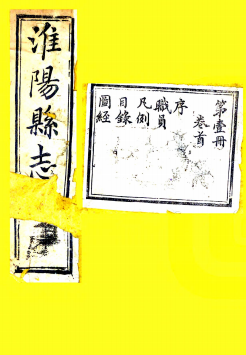 淮陽縣志
第壹冊
卷首
序
職員
凡例
目錄
圖經